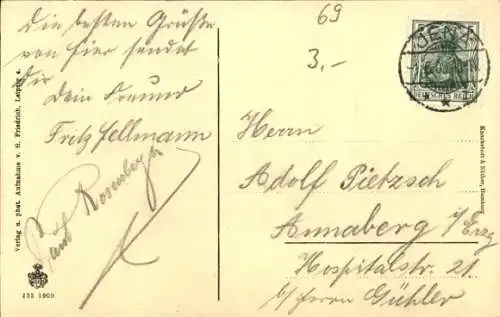 Die besten Grüße
von hier sendet
Dir
Dein Freund
Fritz Fellmann
Paul Rosenberg
69
3.-
JENA
DEUTSCHES REICH
Herrn
Adolf Pietzsch
Annaberg i/Erzg
Hospitalstr. 21.
b/Herrn Gühler
Verlag u. phot. Aufnahme v. G. Friedrich, Leipzig
Knackstedt & Näther, Hamburg
133 1909